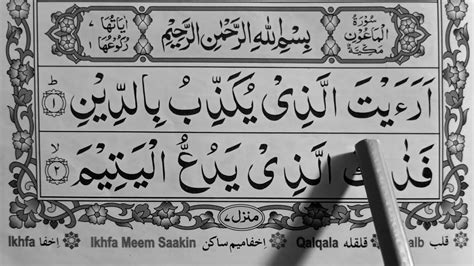 سُوْرَةُ الْمَاعُوْنِ مَكِّيَّةٌ
بِسْمِ اللّٰهِ الرَّحْمٰنِ الرَّحِيْمِ
اٰيَاتُهَا ٧ رُكُوْعُهَا ١
اَرَءَيْتَ الَّذِىْ يُكَذِّبُ بِالدِّيْنِ ؕ ١
فَذٰلِكَ الَّذِىْ يَدُعُّ الْيَتِيْمَ ۙ ٢
منزل ٧
Ikhfa إخفا Ikhfa Meem Saakin إخفا ميم ساكن Qalqala قلقله قلب